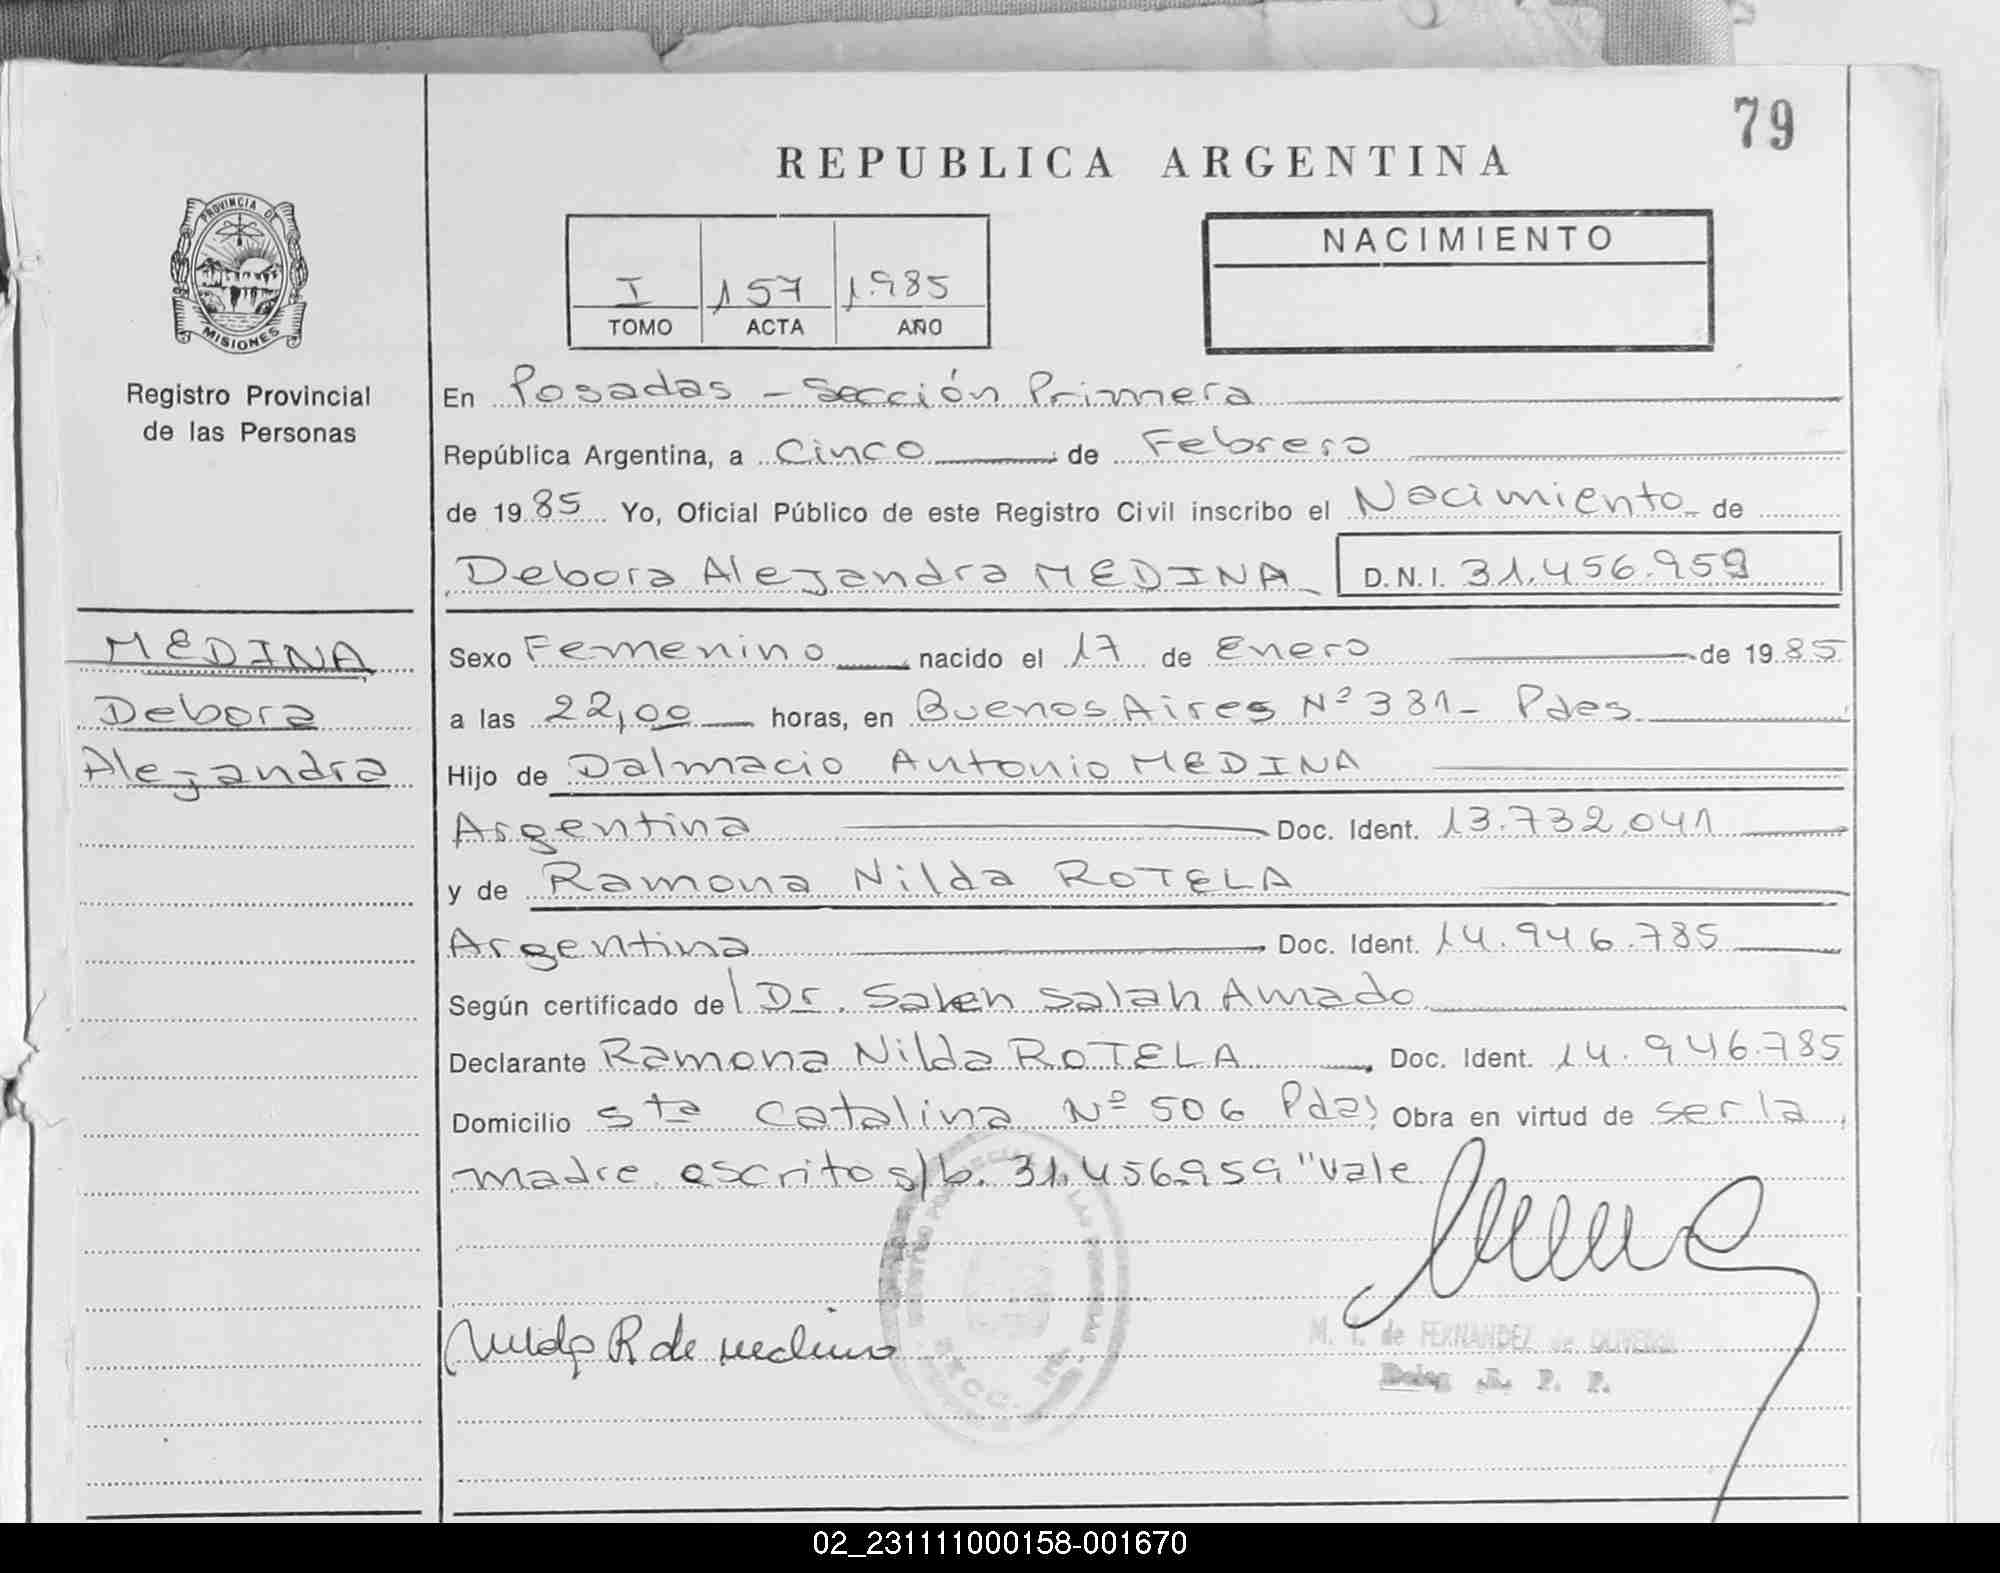 79
REPUBLICA ARGENTINA
PROVINCIA DE
MISIONES
Registro Provincial
de las Personas
I 157 1.985
TOMO ACTA AÑO
NACIMIENTO
En Posadas - Sección Primera
República Argentina, a Cinco de Febrero
de 1985 Yo, Oficial Público de este Registro Civil inscribo el Nacimiento de
Debora Alejandra MEDINA D.N.I. 31.456.959
MEDINA
Debora
Alejandra
Sexo Femenino nacido el 17 de Enero de 1985
a las 22,00 horas, en Buenos Aires Nº 381- Pdas
Hijo de Dalmacio Antonio MEDINA
Argentina Doc. Ident. 13.732.041
y de Ramona Nilda ROTELA
Argentina Doc. Ident. 14.946.785
Según certificado de Dr. Salen Salah Amado
Declarante Ramona Nilda ROTELA, Doc. Ident. 14.946.785
Domicilio Sta Catalina Nº 506 Pdas Obra en virtud de ser la
madre. escrito s/b. 31.456.959 "Vale
Nilda R de Medina
M. I. de FERNANDEZ de OLIVEIRA
Deleg. R. P. P.
02_231111000158-001670